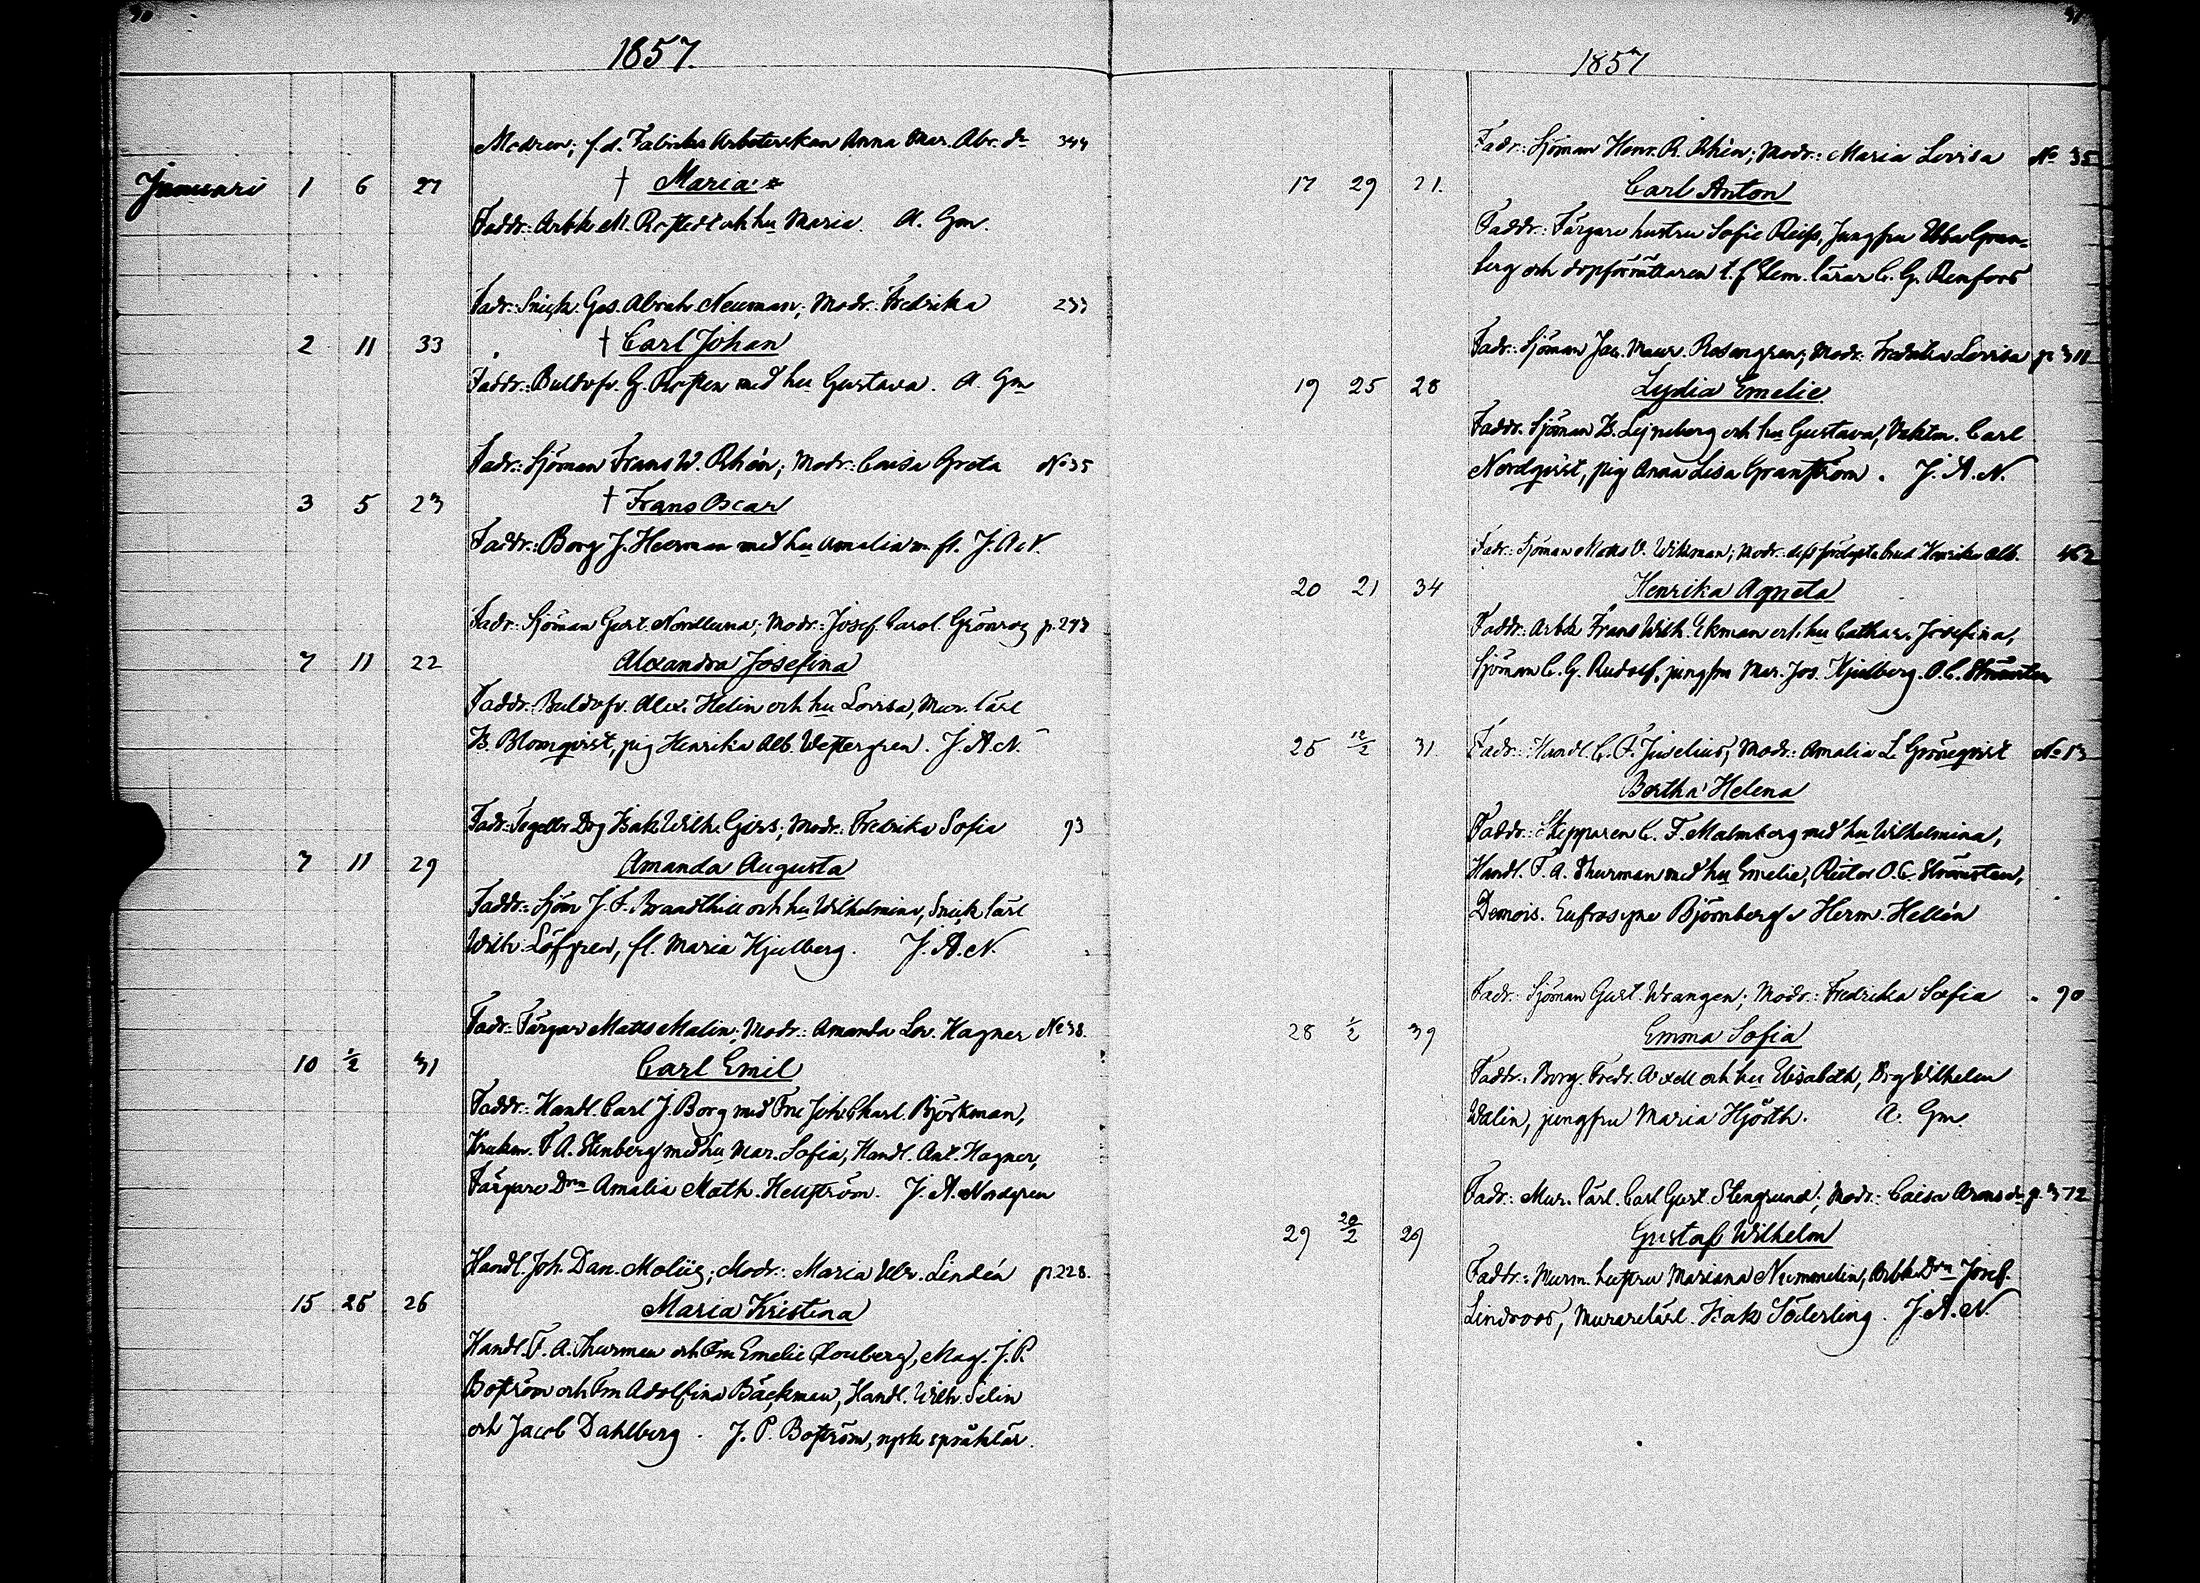 30
1857.
Modren; f.d. Fabriks Arbeterskan Anna Mar. Abr. dr 344
Januari 1 6 27 † Maria *
Faddr: Arbk. M. Rostedt och hu Maria. A. Gm.
Fadr: Snick. Ges. Abrah. Neuman; Modr: Fredrika 233
2 11 33 † Carl Johan
Faddr: Buldrfr. G. Rosten med hu Gustava. A. Gm
Fadr: Sjöman Frans W. Rhén; Modr: Caisa Greta No 35
3 5 23 † Frans Oscar
Faddr: Borg J. Heerman med hu Amalia m. fl. J. A. N.
Fadr: Sjöman Gust. Nordlund; Modr: Josef. Carol. Grönroz p. 293
7 11 22 Alexandra Josefina
Faddr: Buldrfr. Alex. Helin och hu Lovisa, Mur. lärl
Is. Blomqvist, pig Henrika Alb. Westergren. J. A. N.
Fadr: Tegelbr. Drg Isak Wilh. Girs; Modr: Fredrika Sofia 93
7 11 29 Amanda Augusta
Faddr: Sjöm J. F. Brandthill och hu Wilhelmina, Snick lärl
Wilh. Löfgren, fl. Maria Kjulberg. J. A. N.
Fadr: Färgar Matts Malin; Modr: Amanda Lov. Hagner No 38.
10 1/2 31 Carl Emil
Faddr: Handl. Carl J. Borg med Fru Joh. Charl. Björkman,
Krukm. F. A. Stenberg med hu Mar. Sofia, Handl. Ant. Hagner,
Färgare Drn Amalia Math. Hellström. J. A. Nordgren
Handl. Joh. Dan. Moliis; Modr: Maria Ulr. Lindén p. 228.
15 25 26 Maria Kristina
Handl. F. A. Thurman och Fru Emelie Clouberg, Mag. J. P.
Boström och Fru Adolfina Bäckman, Handl. Wilh. Selin
och Jacob Dahlberg. J. P. Boström, rysk språklär.
31
1857
Fadr: Sjöman Henr. R. Rhén; Modr: Maria Lovisa No 35
17 29 21. Carl Anton
Faddr: Färgare hustru Sofie Reiss, Jungfru Ebba Gran-
berg och dopförrättaren t. f. Elem. lärar C. G. Renfors
Fadr: Sjöman Jac. Maur. Rosengren; Modr: Fredrika Lovisa p 311
19 25 28 Lydia Emelie
Faddr. Sjöman Is. Legneberg och hu Gustava, Vaktm. Carl
Nordqvist, pig Anna Lisa Granström. J. A. N.
Fadr: Sjöman Matts V. Wikman; Modr: dess förlofvade brud Henrika Alb. 462
20 21 34 Henrika Agneta
Faddr: Arbk Frans Wilh. Ekman och hu Cathar. Josefina,
Sjöman C. G. Rudolf, jungfru Mar. Jos. Kjulberg. O. C. Strömsten
25 12/2 31 Fadr: Handl. C. F. Juselius, Modr: Amalia L. Grönqvist No 13
Bertha Helena
Faddr: Skepparen C. F. Malmberg med hu Wilhelmina,
Handl. F. A. Thurman med hu Emelie, Rector O. C. Strömsten,
Demois. Eufrosyne Björnberg o Herm. Hellén
Fadr: Sjöman Gust. Wrangen; Modr: Fredrika Sofia 90
28 1/2 39 Emma Sofia
Faddr: Borg. Fredr. Axell och hu Elisabeth, Drg Wilhelm
Walin, jungfru Maria Hjörth. A. Gm
Fadr: Mur. lärl. Carl Gust. Stengrund; Modr: Caisa Arons dr p. 372
29 20/2 29 Gustaf Wilhelm
Faddr: Murm. hustru Mariana Nummelin, Arbk. Drn Josef.
Lindroos, Murarelärl. Isak Söderling. J. A. N.